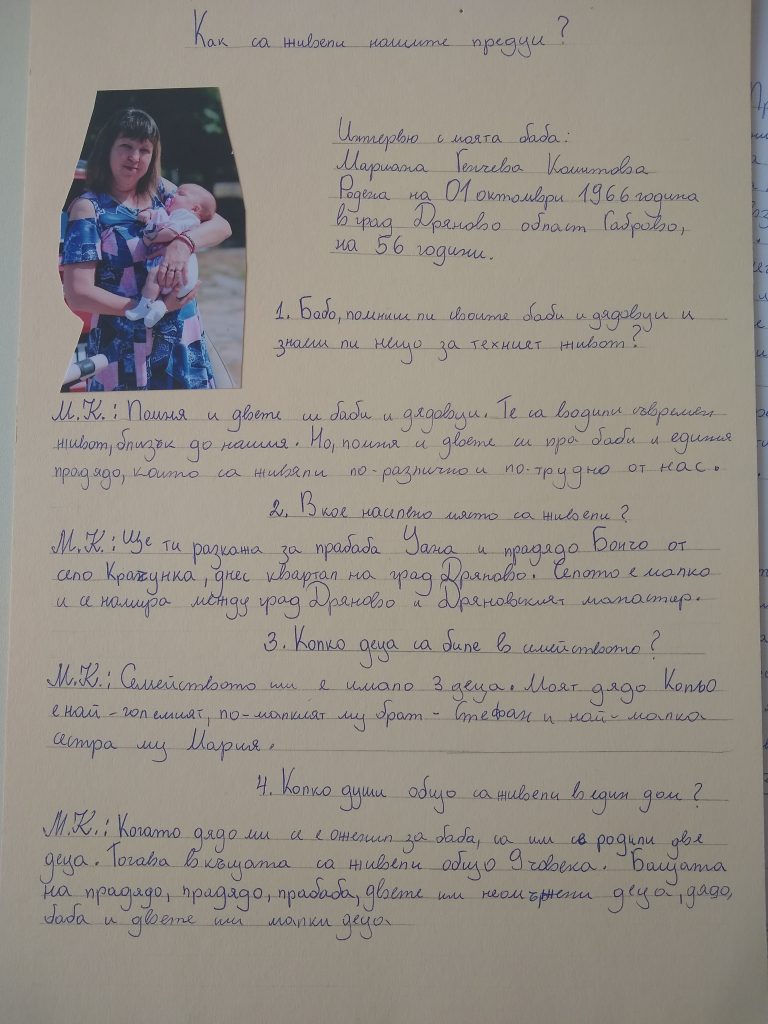 Как са живели нашите предци?
Интервю с моята баба:
Мариана Генчева Коитова
Родена на 01 октомври 1966 година
в град Дряново област Габрово,
на 56 години.
1. Бабо, помниш ли своите баби и дядовци и
знаеш ли нещо за техният живот?
М.К.: Помня и двете си баби и дядовци. Те са водили съвремен
живот, близък до нашия. Но, помня и двете си пра баби и единия
прадядо, които са живяли по-различно и по-трудно от нас.
2. В кое населено място са живели?
М.К.: Ще ти разкажа за прабаба Уана и прадядо Бончо от
село Крачунка, днес квартал на град Дряново. Селото е малко
и се намира между град Дряново и Дряновският манастир.
3. Колко деца са биле в семейството?
М.К.: Семейството им е имало 3 деца. Моят дядо Кольо
е най-големият, по-малкият му брат - Стефан и най-малка
сестра му Мария.
4. Колко души общо са живели в един дом?
М.К.: Когато дядо ми се е оженил за баба, са им се родили две
деца. Тогава в къщата са живели общо 9 човека. Бащата
на прадядо, прадядо, прабаба, двете им неомъжени деца, дядо,
баба и двете им малки деца.